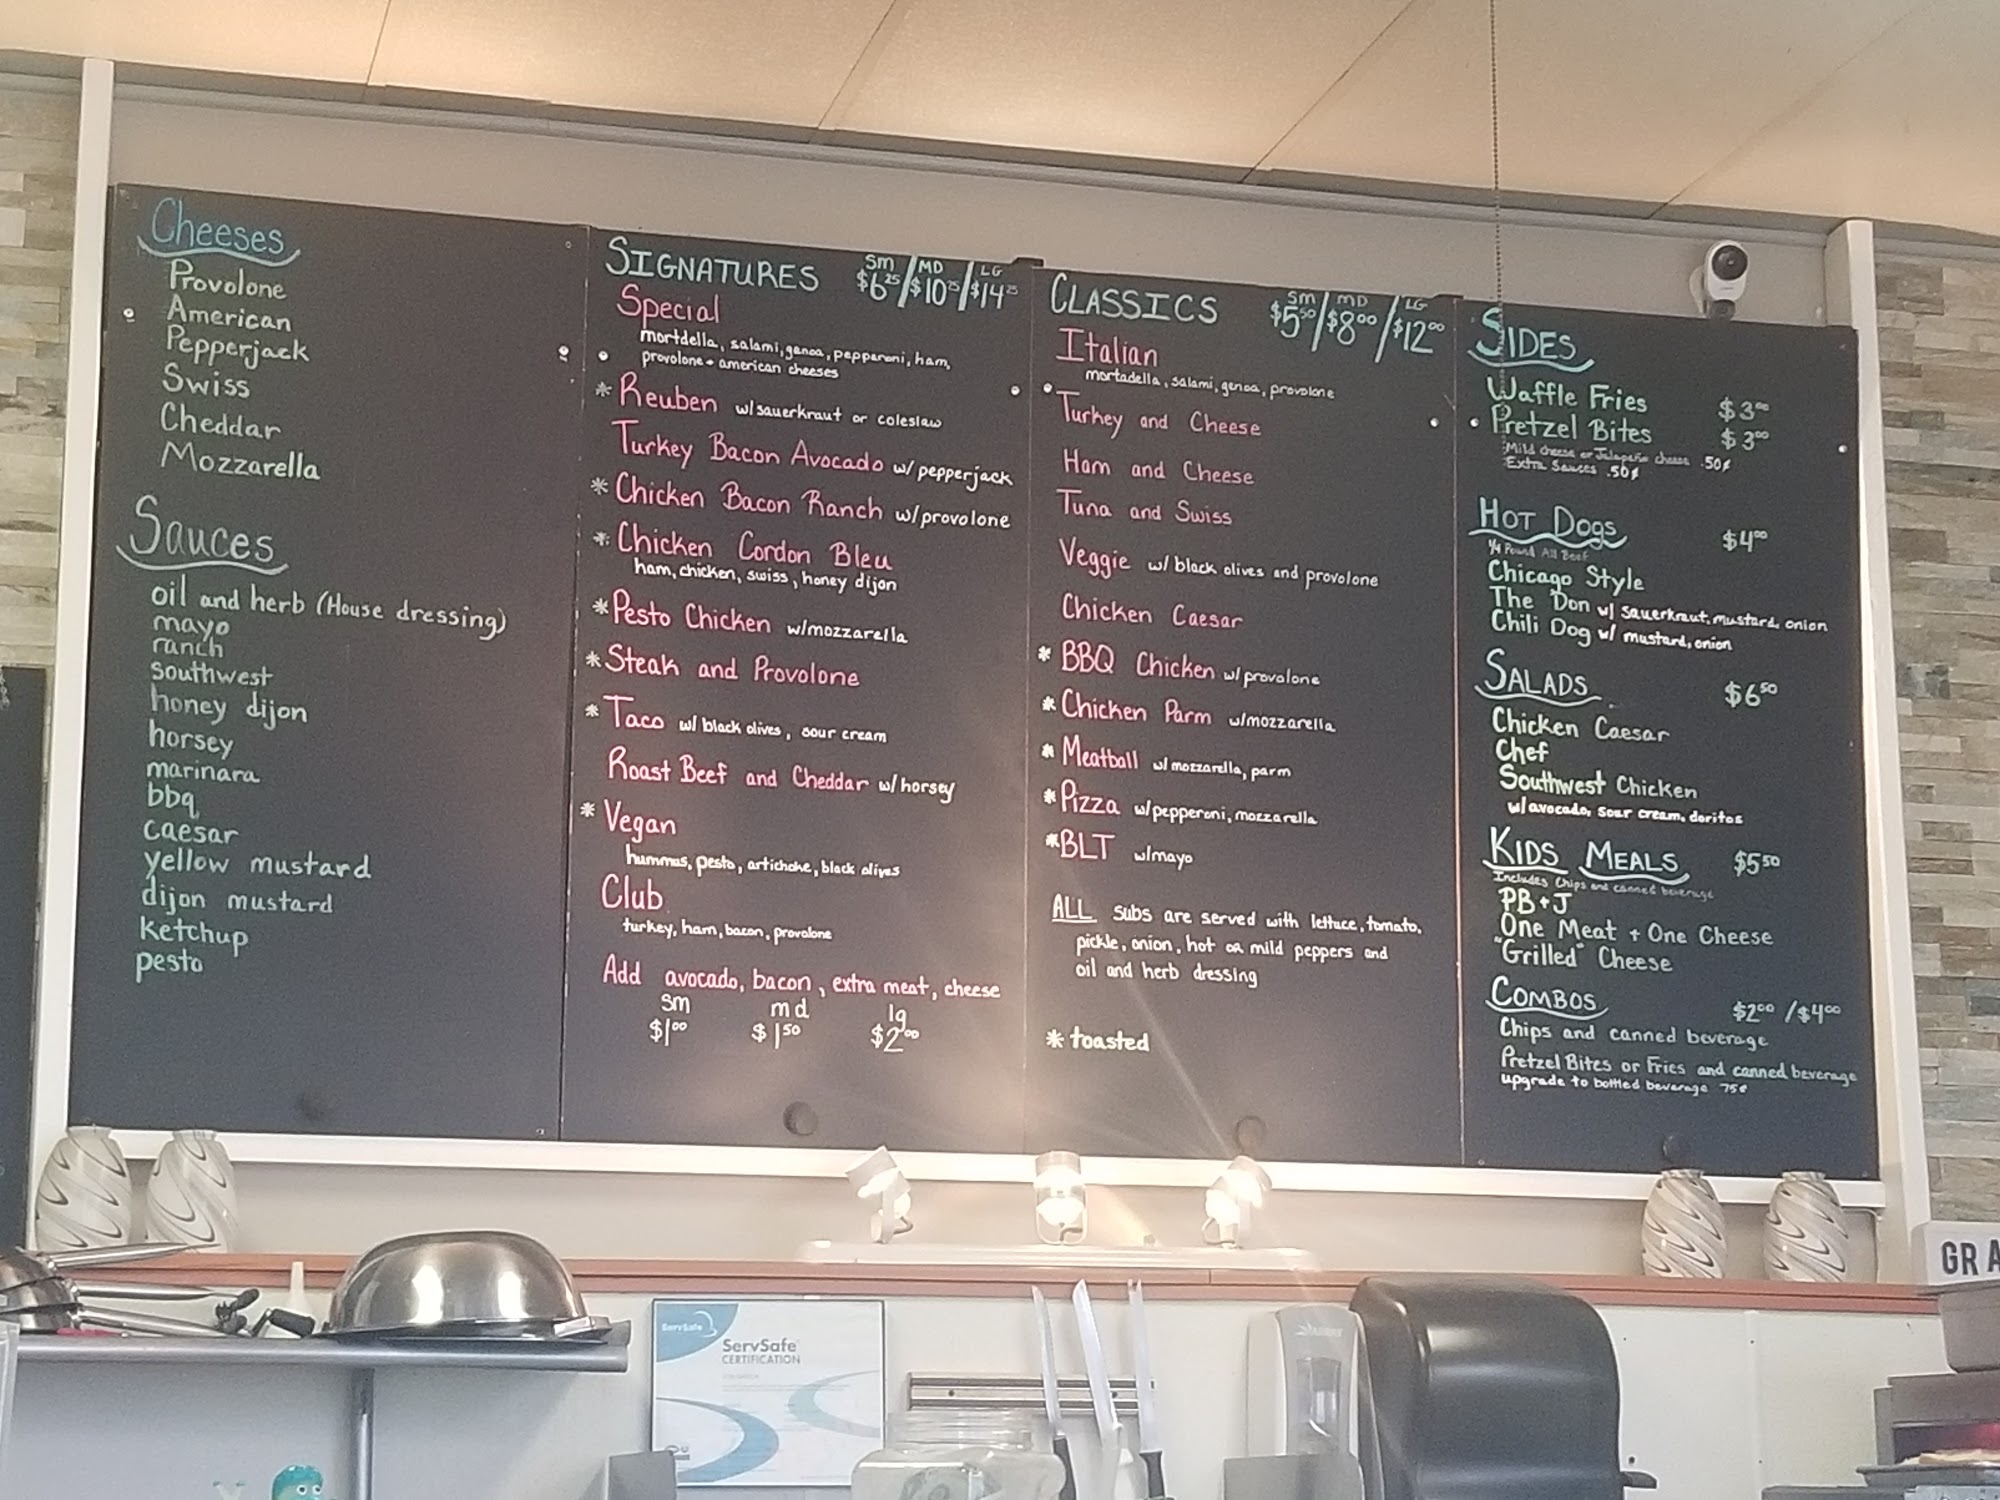 Cheeses
Provolone
American
Pepperjack
Swiss
Cheddar
Mozzarella
Sauces
oil and herb (House dressing)
mayo
ranch
southwest
honey dijon
horsey
marinara
bbq
caesar
yellow mustard
dijon mustard
ketchup
pesto
SIGNATURES
Sm / MD / LG
$6.25 / $10.25 / $14.25
Special
mortdella, salami, genoa, pepperoni, ham,
provolone + american cheeses
* Reuben w/sauerkraut or coleslaw
Turkey Bacon Avocado w/ pepperjack
* Chicken Bacon Ranch w/provolone
* Chicken Cordon Bleu
ham, chicken, swiss, honey dijon
* Pesto Chicken w/mozzarella
* Steak and Provolone
* Taco w/ black olives, sour cream
Roast Beef and Cheddar w/horsey
* Vegan
hummus, pesto, artichoke, black olives
Club
turkey, ham, bacon, provolone
Add avocado, bacon, extra meat, cheese
sm md lg
$1.00 $1.50 $2.00
CLASSICS
Sm / MD / LG
$5.50 / $8.00 / $12.00
Italian
mortadella, salami, genoa, provolone
Turkey and Cheese
Ham and Cheese
Tuna and Swiss
Veggie w/ black olives and provolone
Chicken Caesar
* BBQ Chicken w/provolone
* Chicken Parm w/mozzarella
* Meatball w/mozzarella, parm
* Pizza w/pepperoni, mozzarella
* BLT w/mayo
ALL subs are served with lettuce, tomato,
pickle, onion, hot or mild peppers and
oil and herb dressing
* toasted
SIDES
Waffle Fries $3.00
Pretzel Bites $3.00
Mild cheese or Jalapeño cheese .50¢
Extra Sauces .50¢
HOT DOGS $4.00
1/4 Pound All Beef
Chicago Style
The Don w/ sauerkraut, mustard, onion
Chili Dog w/ mustard, onion
SALADS $6.50
Chicken Caesar
Chef
Southwest Chicken
w/avocado, sour cream, doritos
KIDS MEALS $5.50
Includes Chips and canned beverage
PB+J
One Meat + One Cheese
"Grilled" Cheese
COMBOS $2.00 / $4.00
Chips and canned beverage
Pretzel Bites or Fries and canned beverage
upgrade to bottled beverage 75¢
GRA
ServSafe
ServSafe
CERTIFICATION